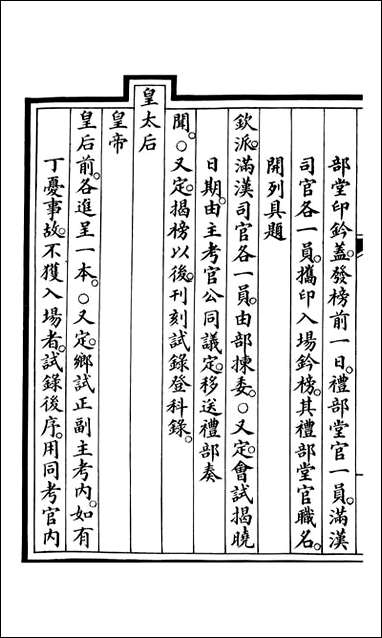 部堂印鈐蓋。發榜前一日。禮部堂官一員。滿漢
司官各一員。攜印入場鈐榜。其禮部堂官職名。
開列具題
欽派。滿漢司官各一員。由部揀委。○又定。會試揭曉
日期。由主考官公同議定。移送禮部奏
聞。○又定。揭榜以後。刊刻試錄登科錄。
皇太后
皇帝
皇后前。各進呈一本。○又定。鄉試正副主考內。如有
丁憂事故。不獲入場者。試錄後序。用同考官內